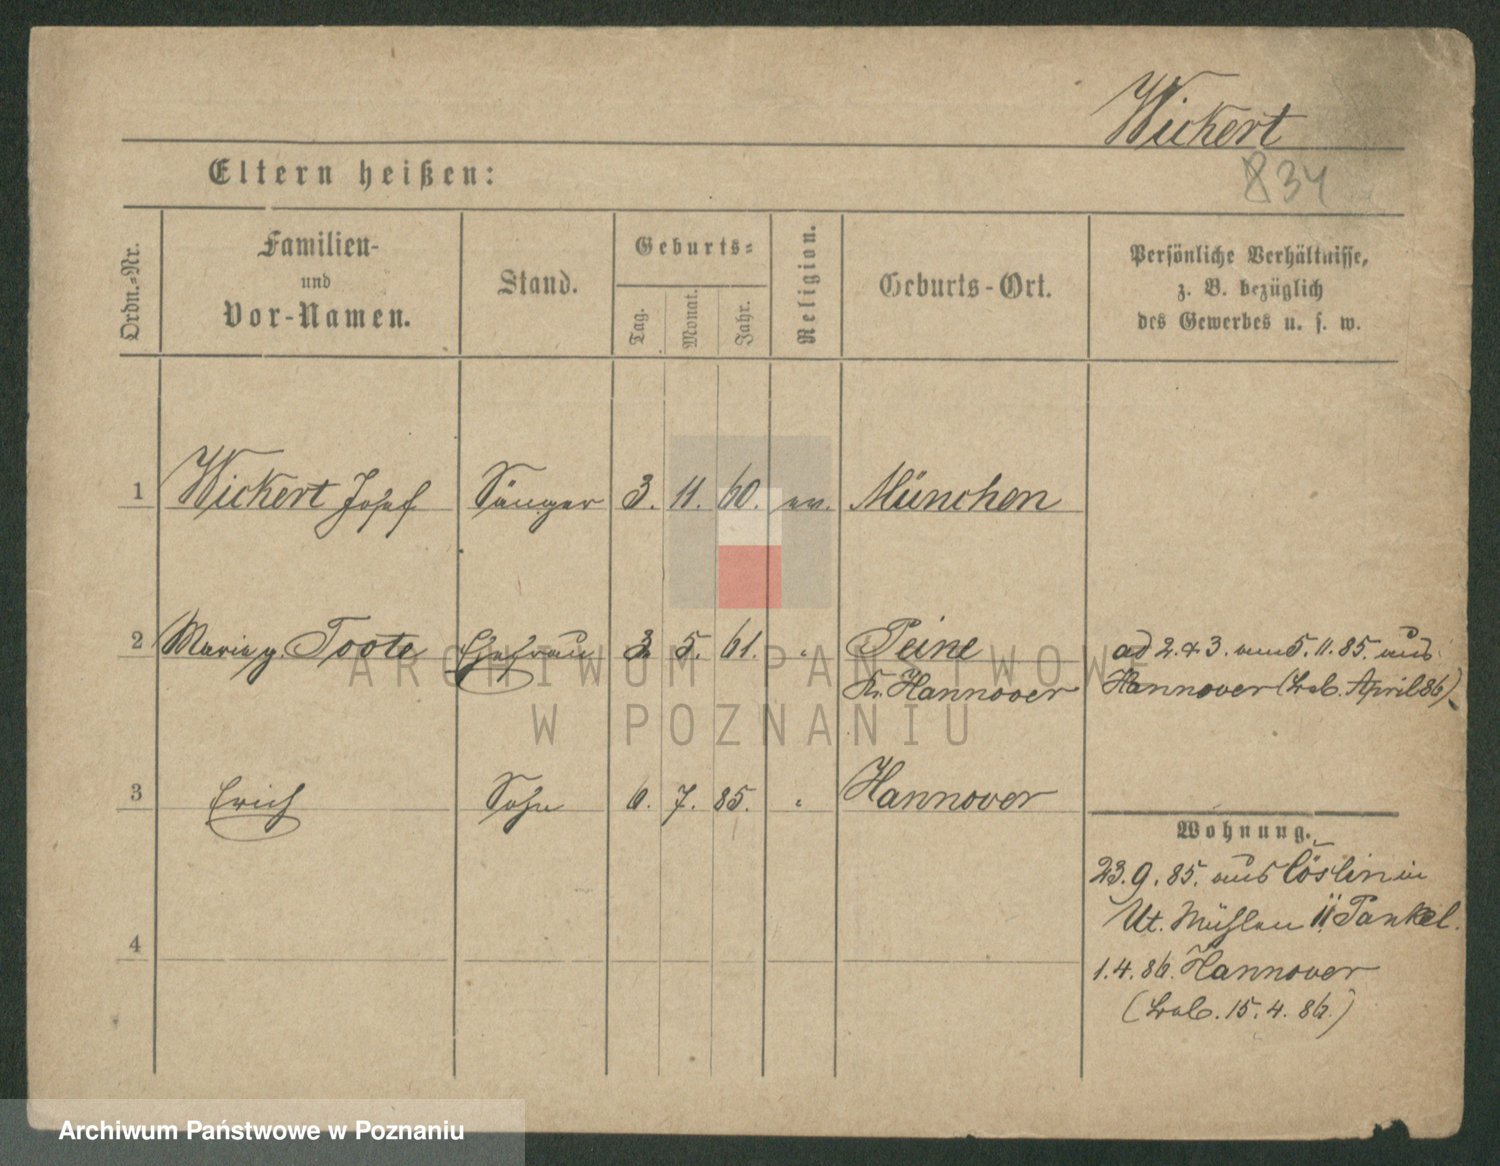 Wickert
834
Eltern heißen:
Ordn.-Nr.
Familien-
und
Vor-Namen.
Stand.
Geburts-
Tag.
Monat.
Jahr.
Religion.
Geburts-Ort.
Persönliche Verhältnisse,
z. B. bezüglich
des Gewerbes u. s. w.
1 Wickert Josef Sänger 3. 11. 60. ev. München
2 Maria g. Toote Ehefrau 3 5. 61. " Peine
Kr. Hannover
ad 2. & 3. am 5. 11. 85. aus
Hannover (Lab. April 86)
3 Erich Sohn 6. 7. 85. " Hannover
Wohnung.
23. 9. 85. aus Cöslin in
Ut. Mühlen 11 Pankel.
1. 4. 86. Hannover
(Lab. 15. 4. 86.)
4
ARCHIWUM PAŃSTWOWE
W POZNANIU
Archiwum Państwowe w Poznaniu